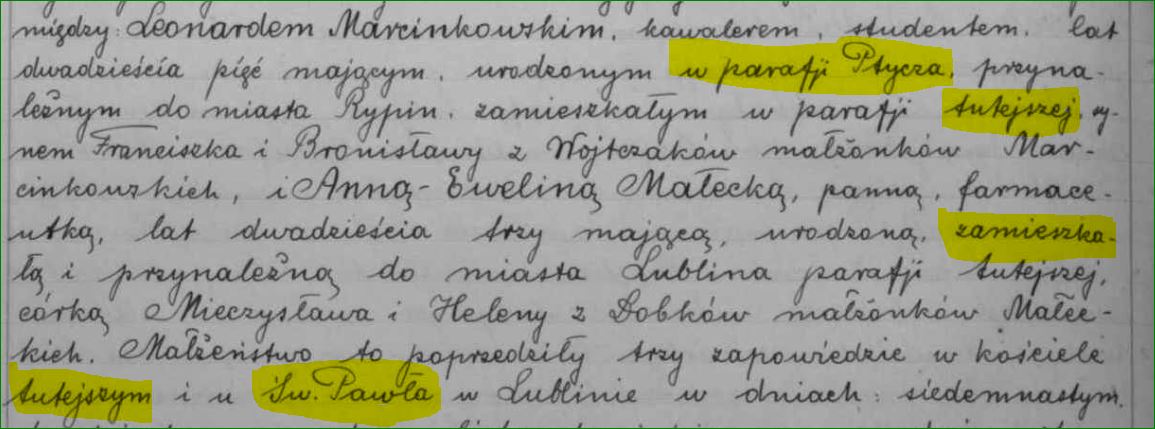 między: Leonardem Marcinkowskim, kawalerem, studentem, lat
dwadzieścia pięć mającym, urodzonym w parafji Ptycza, przyna-
leżnym do miasta Rypin, zamieszkałym w parafji tutejszej, sy-
nem Franciszka i Bronisławy z Wojtczaków małżonków Mar-
cinkowskich, i Anną-Eweliną Małecką, panną, farmace-
utką, lat dwadzieścia trzy mającą, urodzoną, zamieszka-
łą i przynależną do miasta Lublina parafji tutejszej,
córką Mieczysława i Heleny z Dobków małżonków Małec-
kich. Małżeństwo to poprzedziły trzy zapowiedzie w kościele
tutejszym i u Św. Pawła w Lublinie w dniach: siedemnastym,